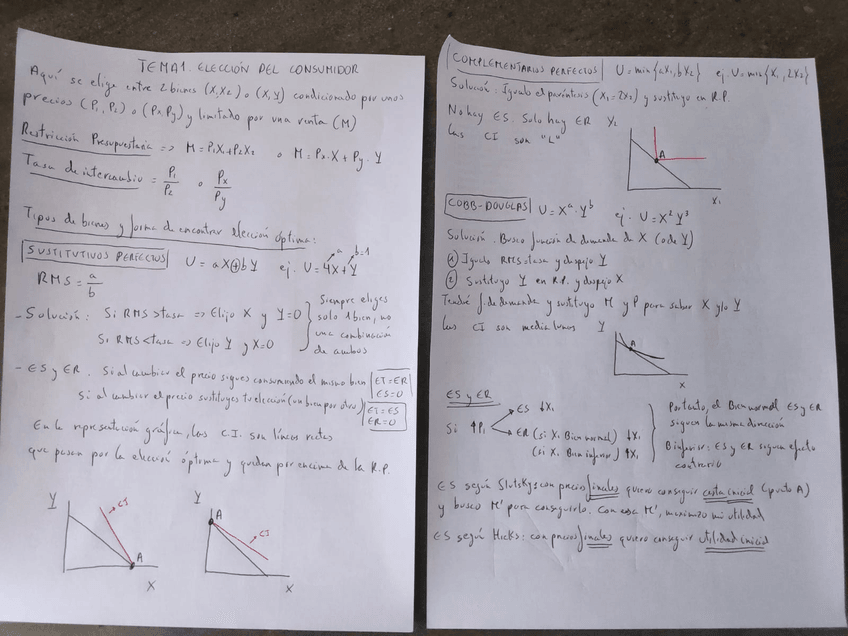 TEMA 1. ELECCIÓN DEL CONSUMIDOR
Aquí se elige entre 2 bienes (X1 X2) o (X, Y) condicionado por unos
precios (P1, P2) o (Px Py) y limitado por una renta (M)
Restricción Presupuestaria => M=P1X1+P2X2 o M=Px·X + Py·Y
Tasa de intercambio = P1/P2 o Px/Py
Tipos de bienes y forma de encontrar elección óptima:
SUSTITUTIVOS PERFECTOS U = aX+bY ej. U=4X+Y
a b=1
RMS = a/b
- Solución: Si RMS>tasa => Elijo X y Y=0
Si RMS<tasa => Elijo Y y X=0
Siempre eliges
solo 1 bien, no
una combinación
de ambos
- ES y ER. Si al cambiar el precio sigues consumiendo el mismo bien ET=ER
ES=0
Si al cambiar el precio sustituyes tu elección (un bien por otro) ET=ES
ER=0
En la representación gráfica, las C.I. son líneas rectas
que pasan por la elección óptima y quedan por encima de la R.P.
Y
CI
A
X
Y
A
CI
X
COMPLEMENTARIOS PERFECTOS U = min{aX1, bX2} ej. U=min{X1, 2X2}
Solución: Igualo el paréntesis (X1=2X2) y sustituyo en R.P.
No hay ES. Solo hay ER
Las CI son "L"
X2
A
X1
COBB-DOUGLAS U = X^a · Y^b ej. U=X²Y³
Solución. Busco función de demanda de X (o de Y)
① Igualo RMS=tasa y despejo Y
② Sustituyo Y en R.P. y despejo X
Tendré f de demanda y sustituyo M y P para saber X y/o Y
Las CI son media lunas
Y
A
X
ES y ER
Si ↑P1
ES ↓X1
ER (si X1 Bien normal) ↓X1
(si X1 Bien inferior) ↑X1
Por tanto, el Bien normal ES y ER
siguen la misma dirección
B inferior: ES y ER siguen efecto
contrario
ES según Slutsky: con precios finales quiero conseguir cesta inicial (punto A)
y busco M' para conseguirlo. Con esa M', maximizo mi utilidad
ES según Hicks: con precios finales quiero conseguir utilidad inicial